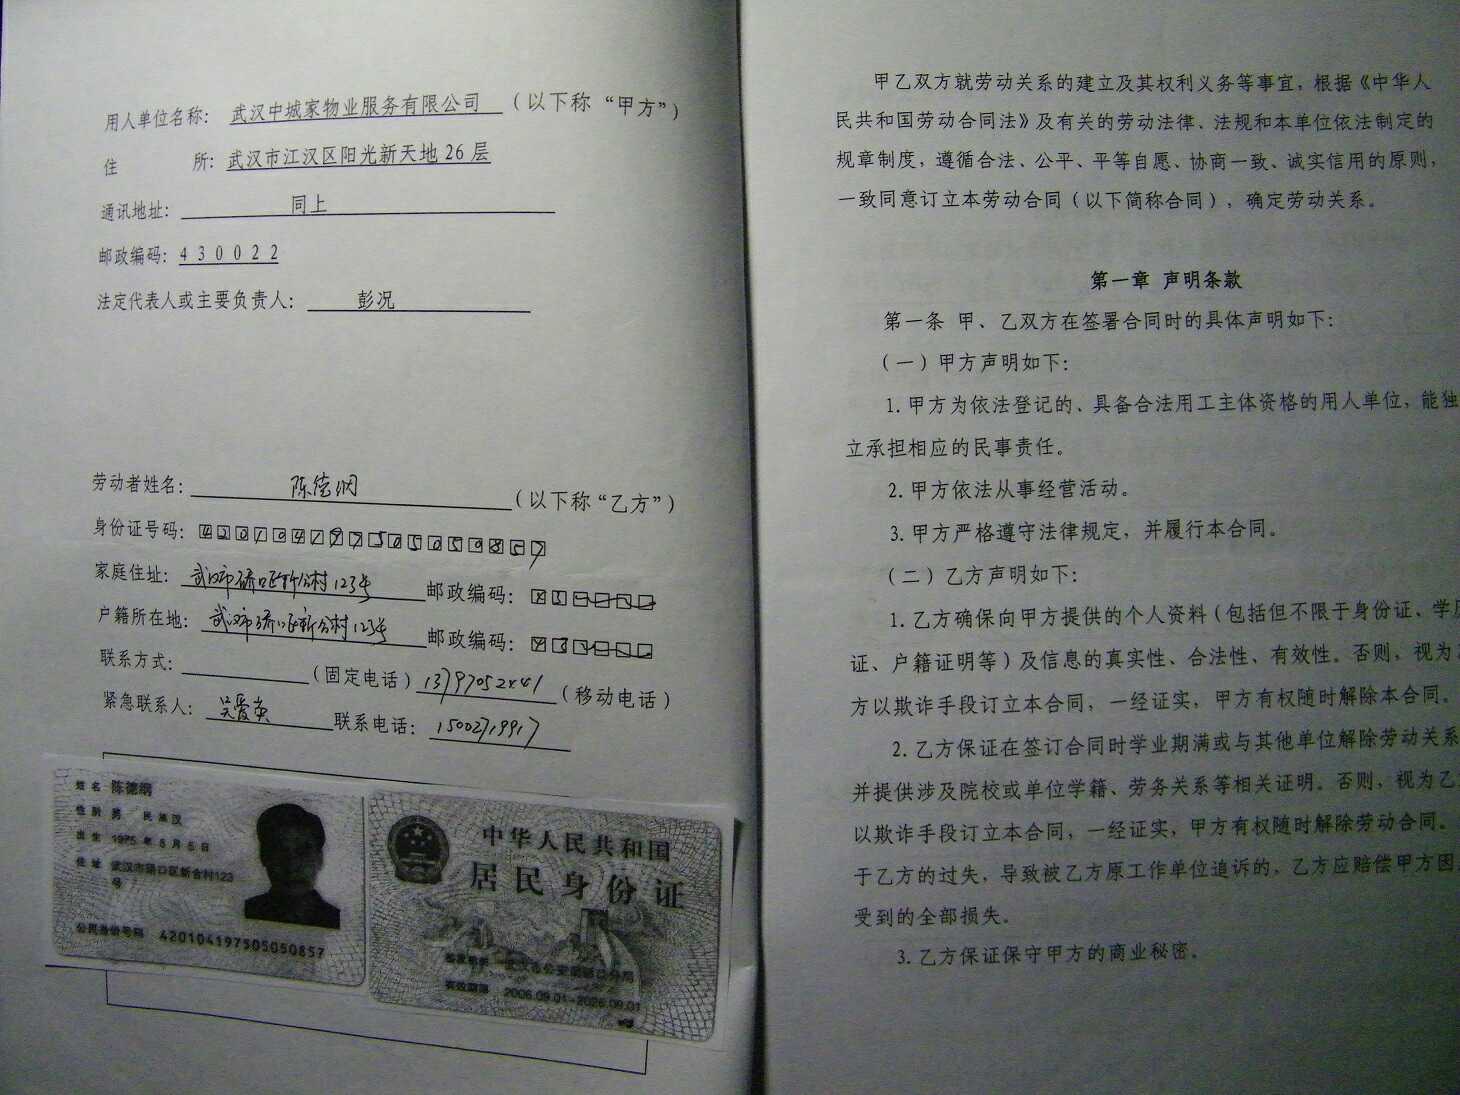 用人单位名称： 武汉中城家物业服务有限公司 （以下称“甲方”）
住 所：武汉市江汉区阳光新天地26层
通讯地址： 同上
邮政编码：430022
法定代表人或主要负责人： 彭况
劳动者姓名： 陈德纲 （以下称“乙方”）
身份证号码：420104197505050857
家庭住址：武汉市硚口区新合村123号 邮政编码：
户籍所在地：武汉市硚口区新合村123号 邮政编码：
联系方式： （固定电话） （移动电话）
紧急联系人：吴爱英 联系电话：
姓名 陈德纲
性别 男 民族 汉
出生 1975年5月5日
住址 武汉市硚口区新合村123
号
公民身份号码 420104197505050857
中华人民共和国
居民身份证
签发机关 武汉市公安局硚口分局
有效期限 2006.09.01-2026.09.01
甲乙双方就劳动关系的建立及其权利义务等事宜，根据《中华人
民共和国劳动合同法》及有关的劳动法律、法规和本单位依法制定的
规章制度，遵循合法、公平、平等自愿、协商一致、诚实信用的原则，
一致同意订立本劳动合同（以下简称合同），确定劳动关系。
第一章 声明条款
第一条 甲、乙双方在签署合同时的具体声明如下：
（一）甲方声明如下：
1.甲方为依法登记的、具备合法用工主体资格的用人单位，能独
立承担相应的民事责任。
2.甲方依法从事经营活动。
3.甲方严格遵守法律规定，并履行本合同。
（二）乙方声明如下：
1.乙方确保向甲方提供的个人资料（包括但不限于身份证、学历
证、户籍证明等）及信息的真实性、合法性、有效性。否则，视为乙
方以欺诈手段订立本合同，一经证实，甲方有权随时解除本合同。
2.乙方保证在签订合同时学业期满或与其他单位解除劳动关系
并提供涉及院校或单位学籍、劳务关系等相关证明。否则，视为乙
以欺诈手段订立本合同，一经证实，甲方有权随时解除劳动合同。
于乙方的过失，导致被乙方原工作单位追诉的，乙方应赔偿甲方因
受到的全部损失。
3.乙方保证保守甲方的商业秘密。